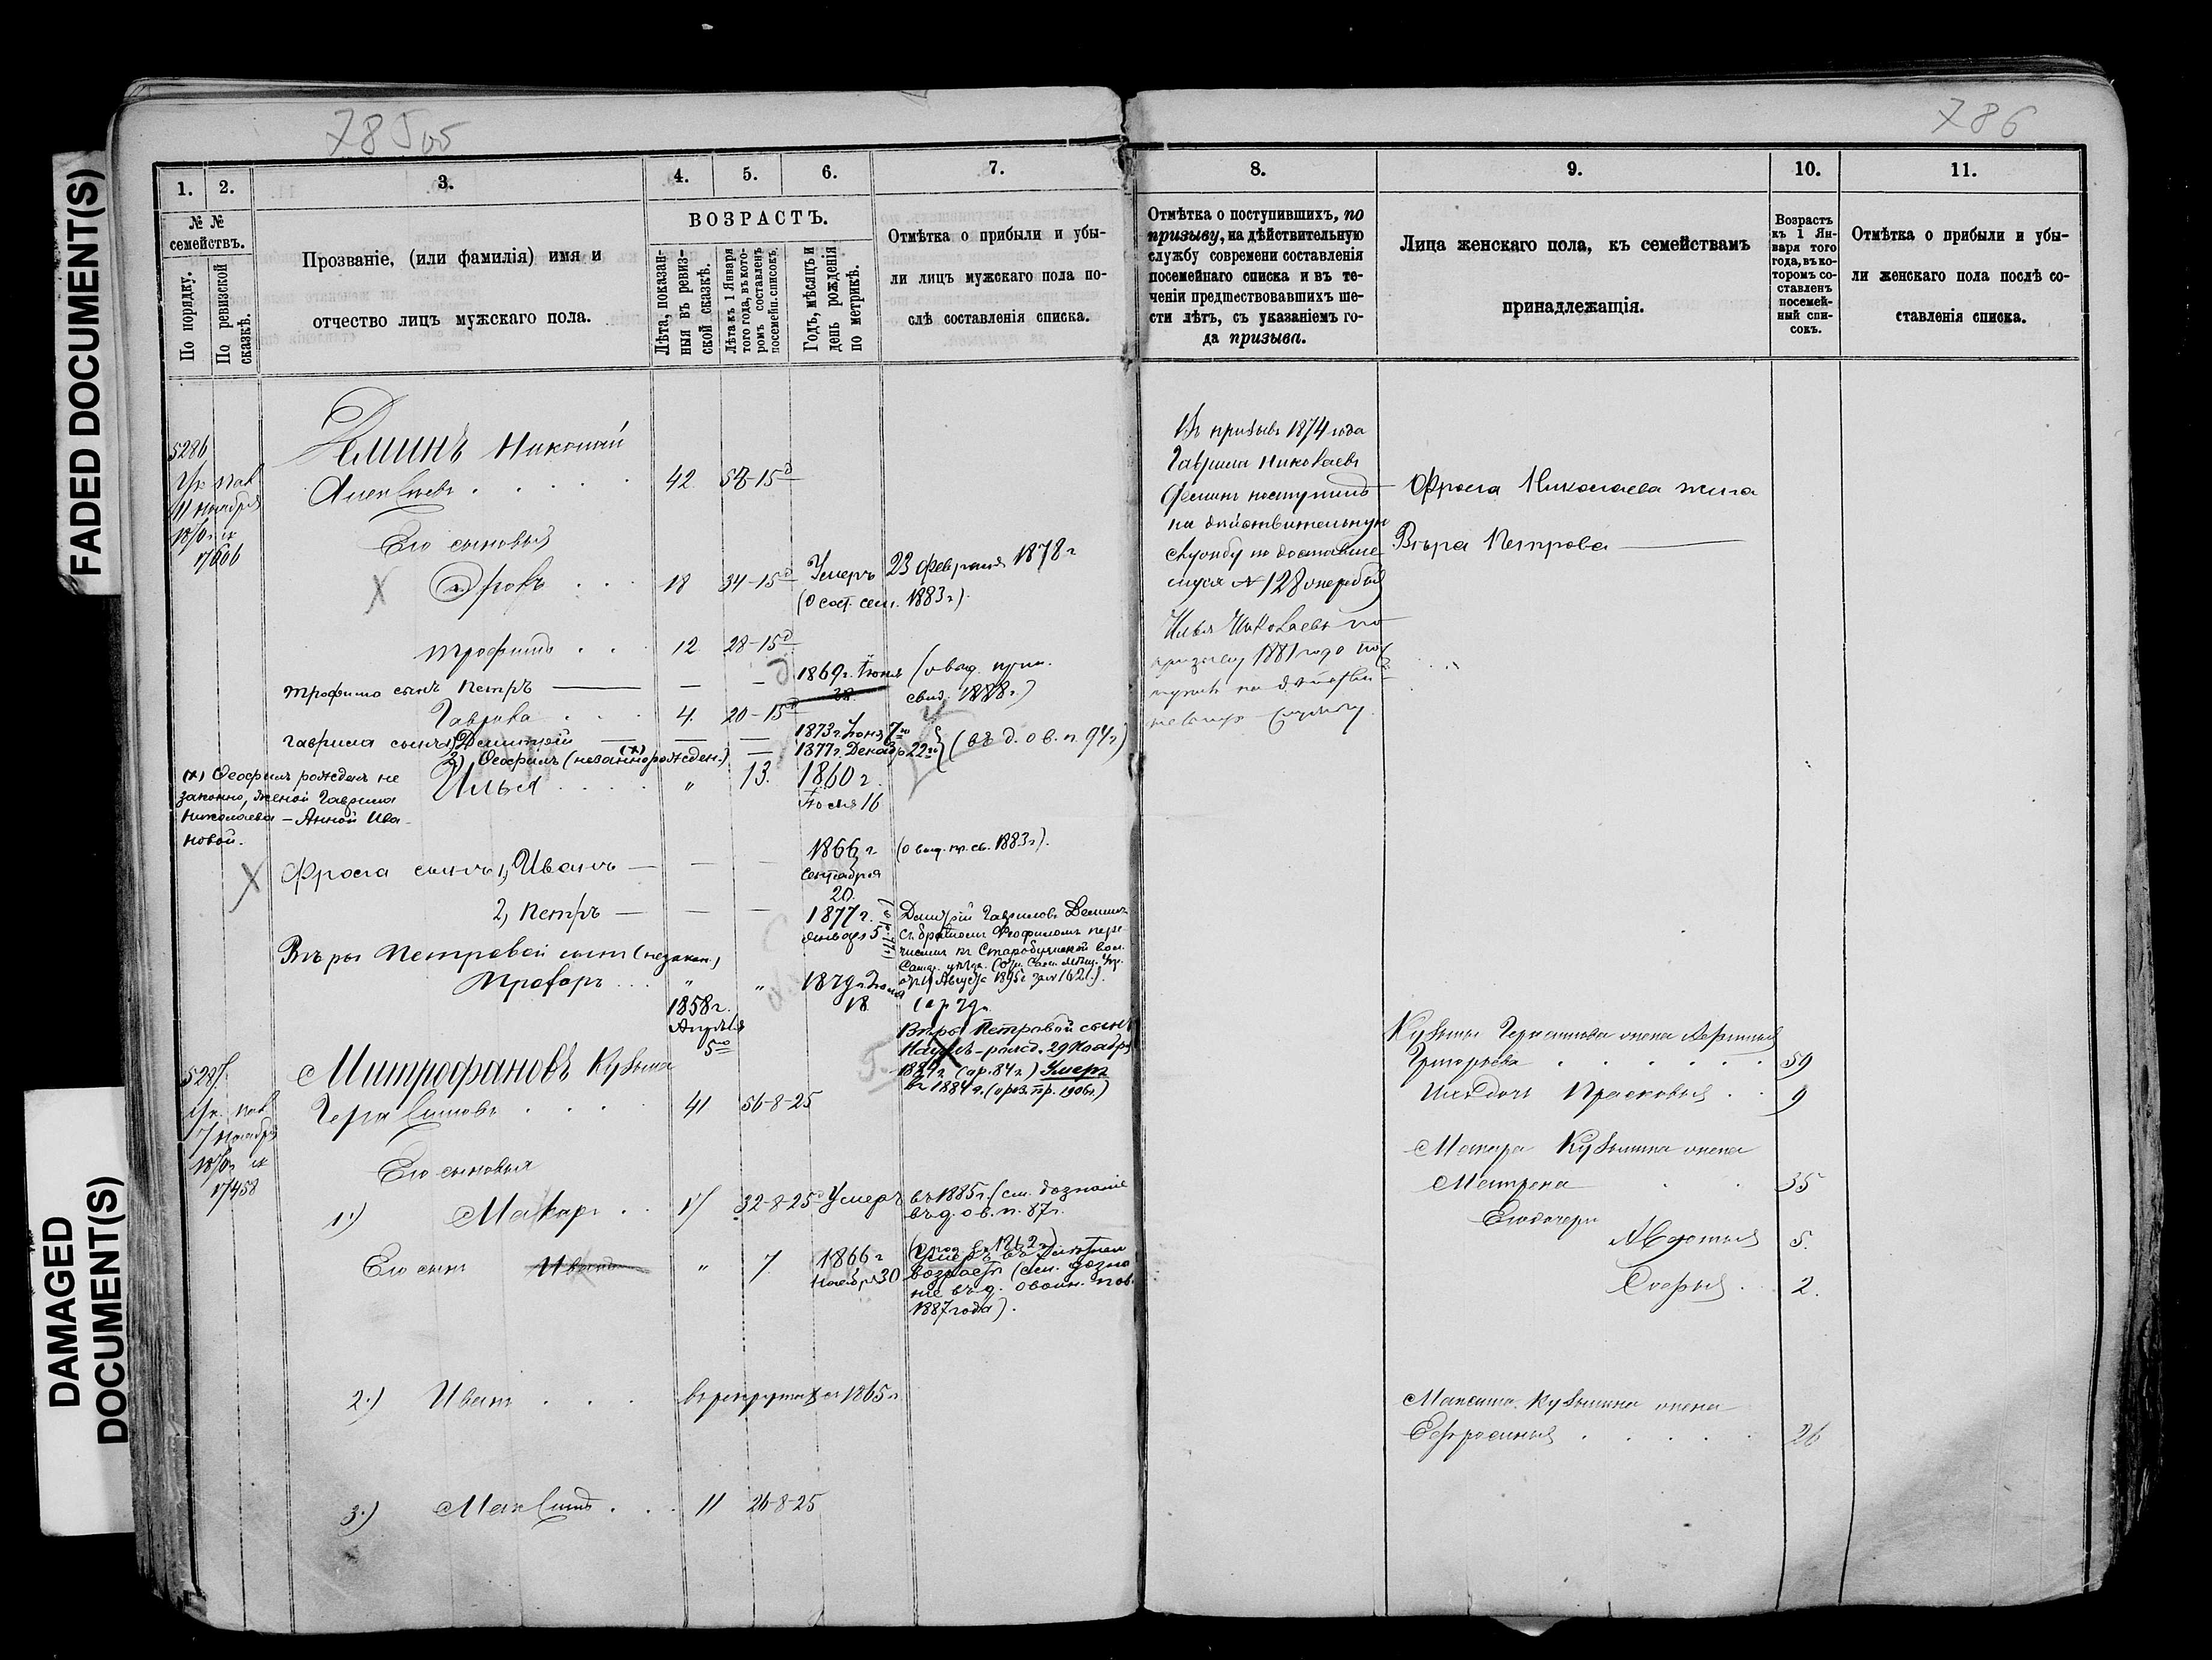 FADED DOCUMENT(S)
DAMAGED
DOCUMENT(S)
785
786
1. 2. 3. 4. 5. 6. 7.
№ №
семействъ.
По порядку.
По ревизской
сказкѣ.
Прозваніе, (или фамилія) имя и
отчество лицъ мужскаго пола.
ВОЗРАСТЪ.
Лѣта, показан-
ныя въ ревиз-
ской сказкѣ.
Лѣта къ 1 Января
того года, въ кото-
ромъ составленъ
посемейн. списокъ.
Годъ, мѣсяцъ и
день рожденія
по метрикѣ.
Отмѣтка о прибыли и убы-
ли лицъ мужскаго пола по-
слѣ составленія списка.
5286
11 ноября
17606
Деминъ Николай
Алексѣевъ 42 58-15
Его сыновья
Х Фролъ 18 34-15 Умеръ 23 февраля 1878 г
(о сост. сем. 1883 г).
Трофимъ 12 28-15
Трофима сынъ Петръ — — — 1869 г. Іюня (о выд. прип.
свид. 1888 г.)
Гаврила 4 20-15
Гаврила сынъ 1) Димитрій — — — 1873 г. Іюня 7
2) Ѳеофилъ (незаннорожден.) (х) — 1877 г. Декабр 22 (въ д. о в. п. 94 г)
(х) Ѳеофилъ рожденъ не
законно, женой Гаврила
Николаева – Анной Ива-
новой.
Илья " 13. 1860 г.
Іюля 16
Х Фрола сынъ 1, Иванъ — — — 1866 г (о выд. пр. св. 1883 г).
сентября
20.
2, Петръ — — — 1877 г.
Января 5
Дмитрій Гавриловъ Деминъ
съ братомъ Ѳеофиломъ пере-
численъ въ Старобуянской вол.
Августа 1895 г
Вѣры Петровой сынъ (незакон.)
" " 1879 г. Іюня
18
1858 г.
Апрѣля
5
Вѣры Петровой сынъ
рожд. 29 Ноабр
1884 г. (ар. 84 г.) Умеръ
въ 1884 г. (о роз. пр. 1906 г)
5287
7 ноября
17458
Митрофановъ Кузьма
Герасимовъ 41 56-8-25
Его сыновья
1.) Макаръ 17 32-8-25 Умеръ въ 1885 г. (см. дознаніе
въ д. о в. п. 87 г.
Его сынъ Иванъ " 7. 1866 г
Ноябр 30
возрастѣ (см. дозна
ніе въ д. о воин. пов
1887 года).
2.) Иванъ въ рекрутахъ съ 1865 г.
3.) Максимъ 11 26-8-25
8. 9. 10. 11.
Отмѣтка о поступившихъ, по
призыву, на дѣйствительную
службу современи составленія
посемейнаго списка и въ те-
ченіи предшествовавшихъ ше-
сти лѣтъ, съ указаніемъ го-
да призыва.
Лица женскаго пола, къ семействамъ
принадлежащія.
Возрастъ
къ 1 Ян-
варя того
года, въ ко-
торомъ со-
ставленъ
посемей-
ный спи-
сокъ.
Отмѣтка о прибыли и убы-
ли женскаго пола послѣ со-
ставленія списка.
Въ призывъ 1874 года
Гаврила Николаевъ
Деминъ поступилъ
на дѣйствительную
службу по доставше-
муся № 128 жеребью
Илья Николаевъ по
призыву 1881 года пос
тупилъ на дѣйстви-
тельную службу.
Фрола Николаева жена
Вѣра Петрова
Кузьмы Герасимова жена
Григорьева 59
Прасковья 9
Макара Кузьмина жена
Матрена 35
Его дочери
Авдотья 5.
Софья 2.
Максима Кузьмина жена
Ефросинья 26